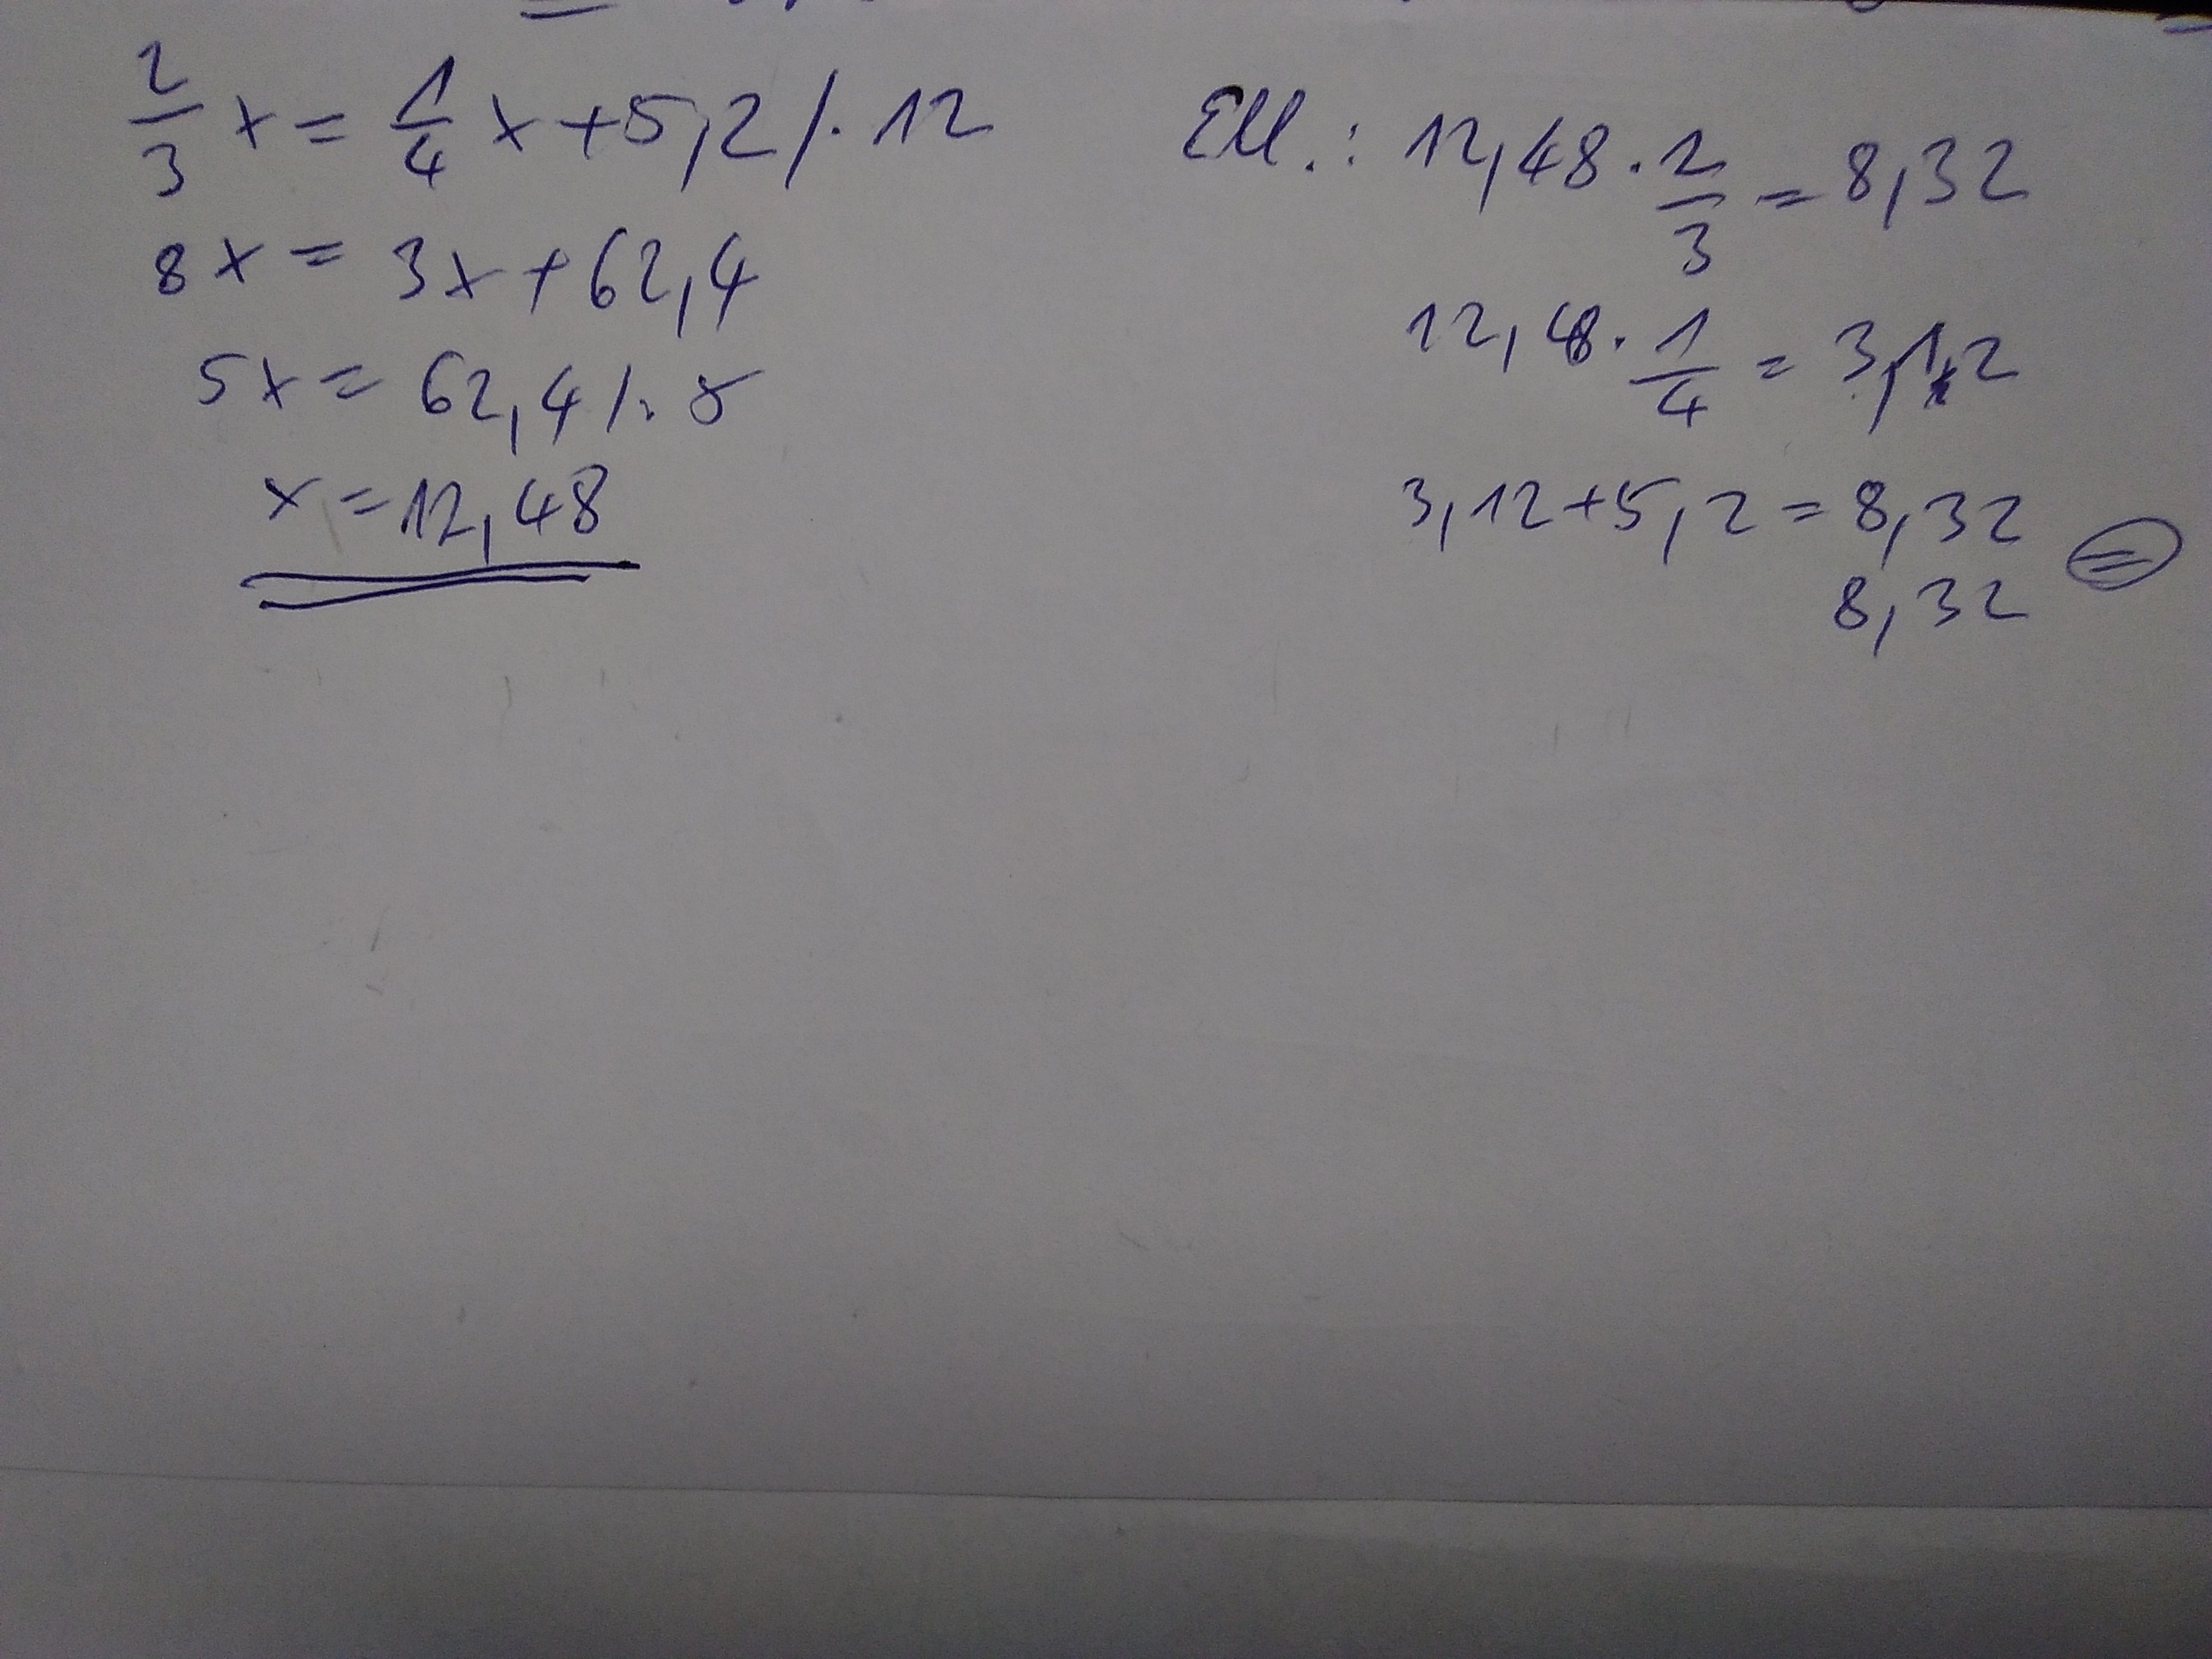 2/3 x = 1/4 x + 5,2 /· 12
8x = 3x + 62,4
5x = 62,4 /: 5
x = 12,48
Ell.: 12,48 · 2/3 = 8,32
12,48 · 1/4 = 3,12
3,12 + 5,2 = 8,32
8,32
=